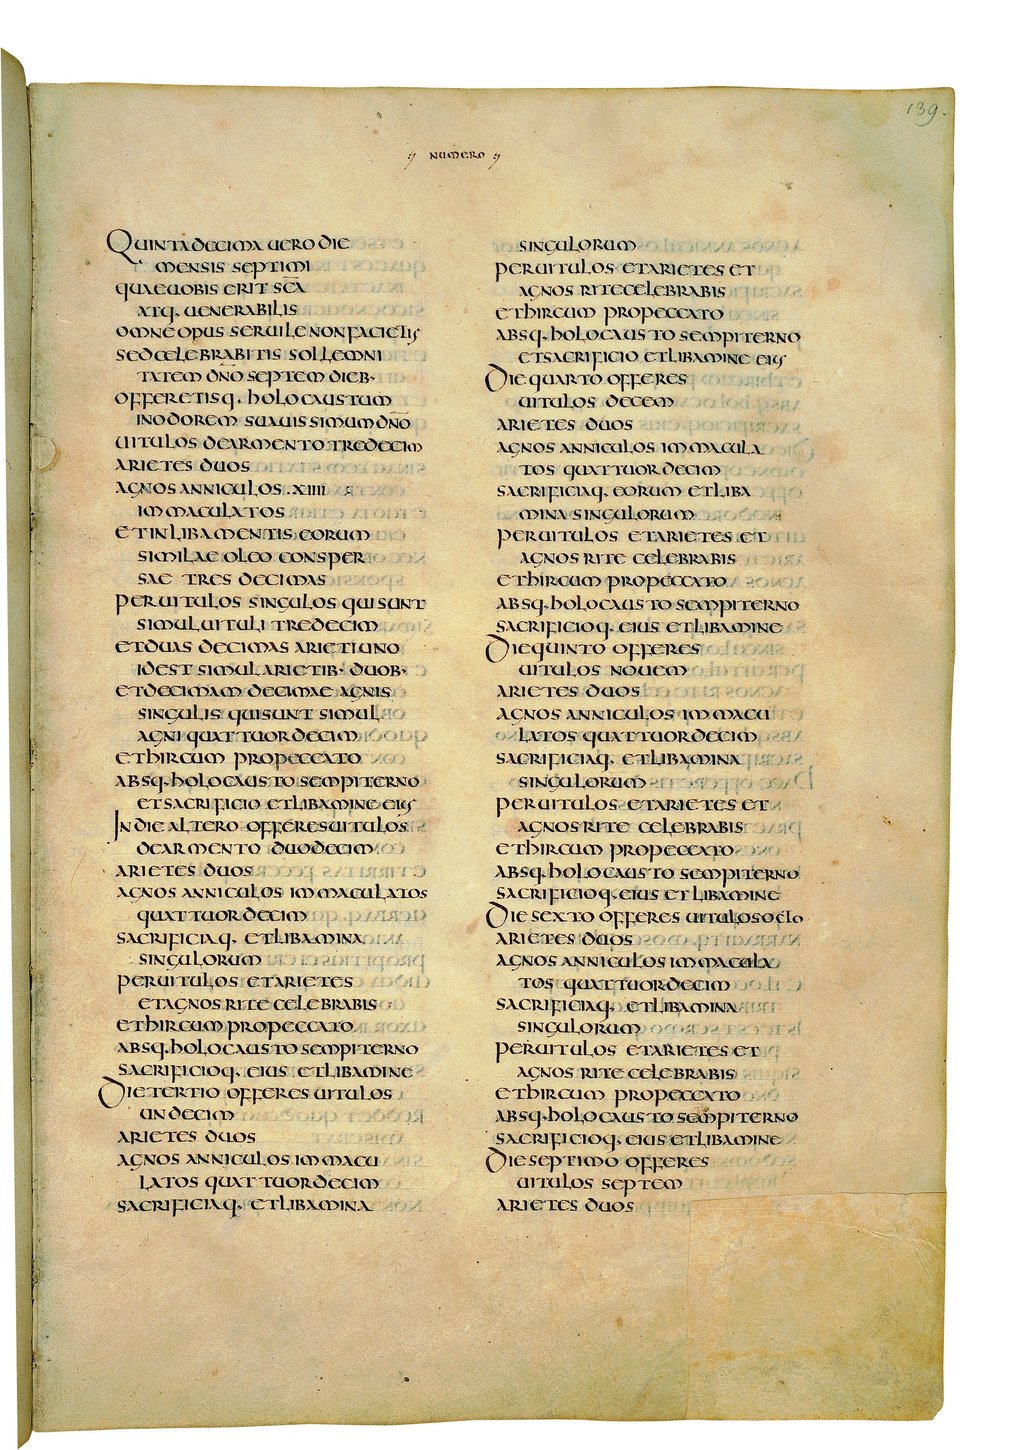 139.
NUMERO
QUINTADECIMA UERO DIE
MENSIS SEPTIMI
QUAE UOBIS ERIT SCA
ATQ· UENERABILIS
OMNE OPUS SERUILE NON FACIETIS
SED CELEBRABITIS SOLLEMNI
TATEM DNO SEPTEM DIEB·
OFFERETISQ· HOLOCAUSTUM
IN ODOREM SUAUISSIMUM DNO
UITULOS DE ARMENTO TREDECIM
ARIETES DUOS
AGNOS ANNICULOS ·XIIII
IMMACULATOS
ET IN LIBAMENTIS EORUM
SIMILAE OLEO CONSPER
SAE TRES DECIMAS
PER UITULOS SINGULOS QUI SUNT
SIMUL UITULI TREDECIM
ET DUAS DECIMAS ARIETI UNO
ID EST SIMUL ARIETIB· DUOB·
ET DECIMAM DECIMAE AGNIS
SINGULIS QUI SUNT SIMUL
AGNI QUATTUORDECIM
ET HIRCUM PRO PECCATO
ABSQ· HOLOCAUSTO SEMPITERNO
ET SACRIFICIO ET LIBAMINE EIUS
IN DIE ALTERO OFFERES UITULOS
DE ARMENTO DUODECIM
ARIETES DUOS
AGNOS ANNICULOS IMMACULATOS
QUATTUORDECIM
SACRIFICIAQ· ET LIBAMINA
SINGULORUM
PER UITULOS ET ARIETES
ET AGNOS RITE CELEBRABIS
ET HIRCUM PRO PECCATO
ABSQ· HOLOCAUSTO SEMPITERNO
SACRIFICIOQ· EIUS ET LIBAMINE
DIE TERTIO OFFERES UITULOS
UNDECIM
ARIETES DUOS
AGNOS ANNICULOS IMMACU
LATOS QUATTUORDECIM
SACRIFICIAQ· ET LIBAMINA
SINGULORUM
PER UITULOS ET ARIETES ET
AGNOS RITE CELEBRABIS
ET HIRCUM PRO PECCATO
ABSQ· HOLOCAUSTO SEMPITERNO
ET SACRIFICIO ET LIBAMINE EIUS
DIE QUARTO OFFERES
UITULOS DECEM
ARIETES DUOS
AGNOS ANNICULOS IMMACULA
TOS QUATTUORDECIM
SACRIFICIAQ· EORUM ET LIBA
MINA SINGULORUM
PER UITULOS ET ARIETES ET
AGNOS RITE CELEBRABIS
ET HIRCUM PRO PECCATO
ABSQ· HOLOCAUSTO SEMPITERNO
SACRIFICIOQ· EIUS ET LIBAMINE
DIE QUINTO OFFERES
UITULOS NOUEM
ARIETES DUOS
AGNOS ANNICULOS IMMACU
LATOS QUATTUORDECIM
SACRIFICIAQ· ET LIBAMINA
SINGULORUM
PER UITULOS ET ARIETES ET
AGNOS RITE CELEBRABIS
ET HIRCUM PRO PECCATO
ABSQ· HOLOCAUSTO SEMPITERNO
SACRIFICIOQ· EIUS ET LIBAMINE
DIE SEXTO OFFERES UITULOS OCTO
ARIETES DUOS
AGNOS ANNICULOS IMMACULA
TOS QUATTUORDECIM
SACRIFICIAQ· ET LIBAMINA
SINGULORUM
PER UITULOS ET ARIETES ET
AGNOS RITE CELEBRABIS
ET HIRCUM PRO PECCATO
ABSQ· HOLOCAUSTO SEMPITERNO
SACRIFICIOQ· EIUS ET LIBAMINE
DIE SEPTIMO OFFERES
UITULOS SEPTEM
ARIETES DUOS